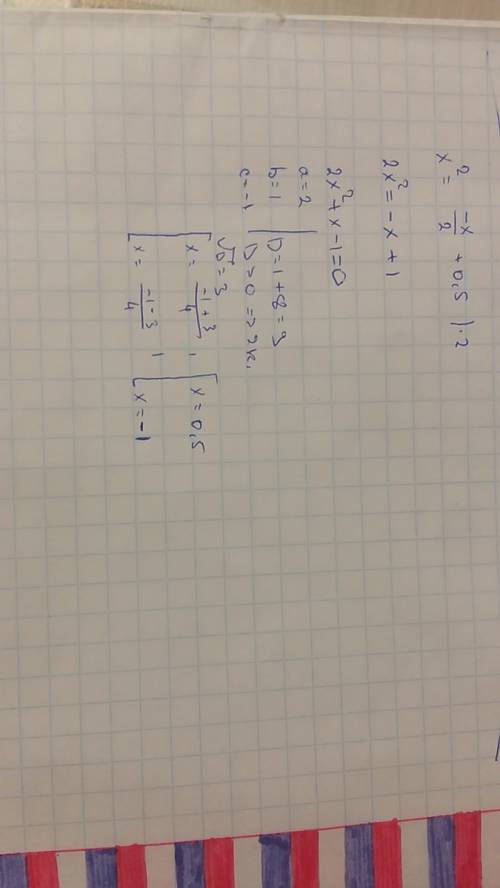 x² = -x/2 + 0,5 | · 2
2x² = -x + 1
2x² + x - 1 = 0
a = 2
b = 1 | D = 1 + 8 = 9
c = -1 | D > 0 => 2к.
√D = 3
[ x = (-1 + 3)/4 , [ x = 0,5
[ x = (-1 - 3)/4 , [ x = -1